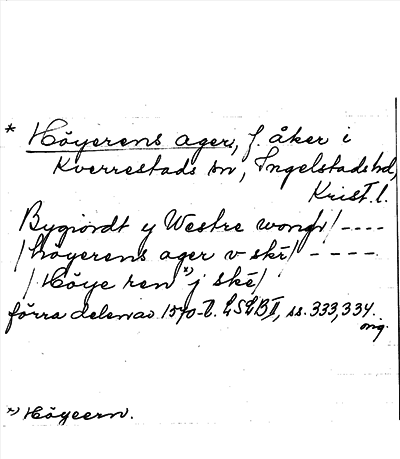 * Höyerens ager, f. åker i
Kverrestads sn, Ingelstads hd,
Krist. l.
Bygiordt y Westre wongh/----
/höyerens ager v skē/ ----
/Höye ren *) j skē/
förra delen av 1570-t. LSLB II, ss. 333, 334.
orig.
*) Höyeern.